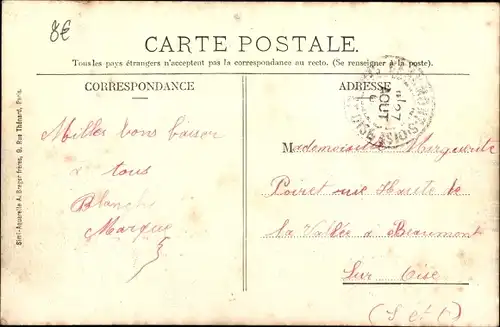 8€
CARTE POSTALE.
Tous les pays étrangers n'acceptent pas la correspondance au recto. (Se renseigner à la poste).
CORRESPONDANCE
ADRESSE
Milles bons baiser
a tous
Blanche
Marque
Mademoiselle Marguerite
Poiret rue Haute de
la Vallée à Beaumont
Sur Oise
(S et O)
Simi-Aquarelle A. Breger frères, 9, Rue Thénard, Paris.
27
AOUT
OISE